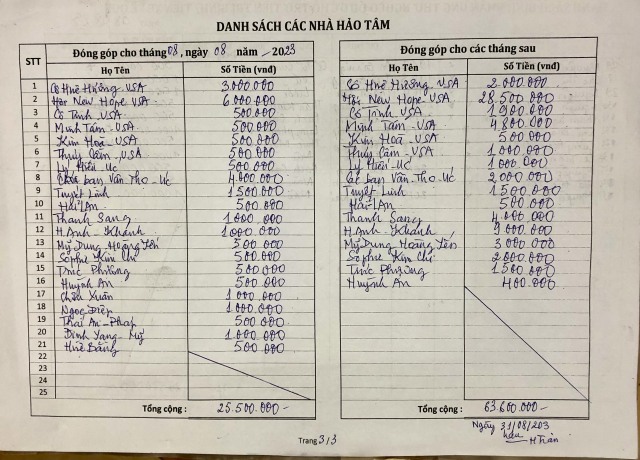 DANH SÁCH CÁC NHÀ HẢO TÂM
STT Đóng góp cho tháng 08, ngày 08 năm 2023
Họ Tên Số Tiền (vnđ)
1 Cô Huê Hương USA 3.000.000
2 Hội New Hope USA 6.000.000
3 Cô Tánh USA 500.000
4 Minh Tâm USA 500.000
5 Kim Hoà USA 500.000
6 Thụy Cầm USA 500.000
7 Lý Hiền-Úc 500.000
8 Các bạn Văn Thơ-Úc 4.000.000
9 Tuyết Linh 1500.000
10 Hải An 500.000
11 Thanh Sang 1.000.000
12 H.Anh-Khánh 1.000.000
13 Mỹ Dung Hoàng Yến 500.000
14 Sophie Kim Chi 500.000
15 Trúc Phương 500.000
16 Huỳnh An 500.000
17 Châu Xuân 1.000.000
18 Ngọc Diệp 1.000.000
19 Thái An-Pháp 500.000
20 Đinh Yang-Mỹ 1.000.000
21 Huê Bằng 500.000
22
23
24
25
Tổng cộng : 25.500.000-
Đóng góp cho các tháng sau
Họ Tên Số Tiền (vnđ)
Cô Huê Hương USA 2.000.000
Hội New Hope USA 28.500.000
Cô Tánh USA 1.900.000
Minh Tâm USA 4.800.000
Kim Hoà USA 500.000
Thụy Cầm USA 1.000.000
Lý Hiền-Úc 1.000.000
Các bạn Văn Thơ-Úc 2.000.000
Tuyết Linh 1500.000
Hải An 500.000
Thanh Sang 4.000.000
H.Anh Khánh 9.000.000
Mỹ Dung Hoàng Yến 3.000.000
Sophie Kim Chi 2.000.000
Trúc Phương 1.500.000
Huỳnh An 400.000
Tổng cộng : 63.600.000-
Ngày 31/08/203
Trang 3/3